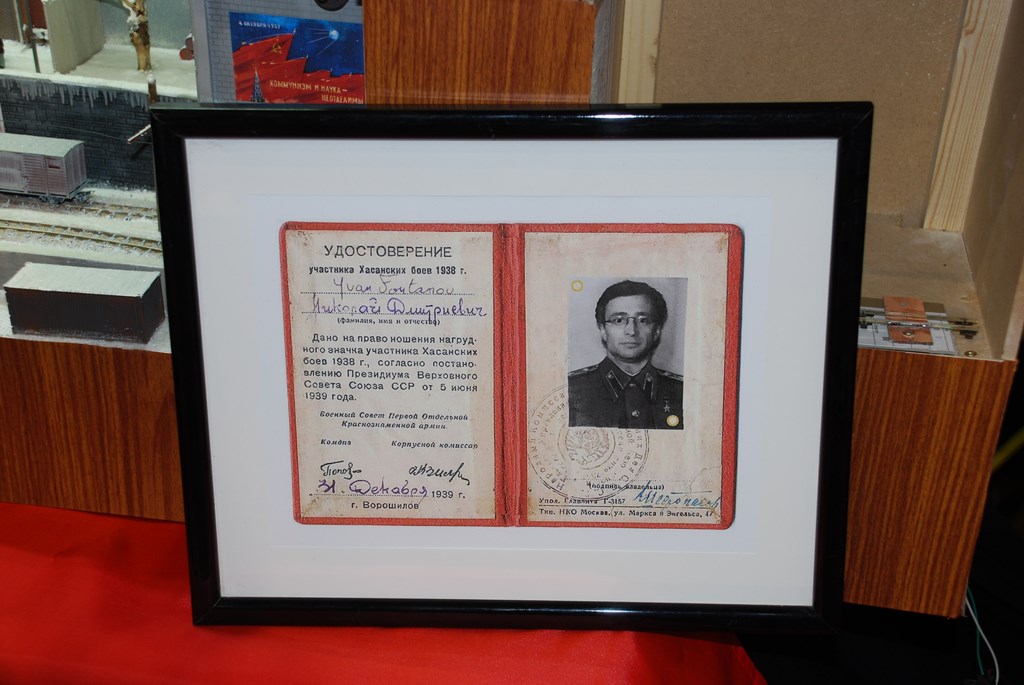 4 ОКТЯБРЯ 1957
КОММУНИЗМ И НАУКА –
НЕОТДЕЛИМЫ
УДОСТОВЕРЕНИЕ
участника Хасанских боев 1938 г.
Yvan
Николай Дмитриевич
(фамилия, имя и отчество)
Дано на право ношения нагруд-
ного значка участника Хасанских
боев 1938 г., согласно постано-
влению Президиума Верховного
Совета Союза ССР от 5 июня
1939 года.
Военный Совет Первой Отдельной
Краснознаменной армии.
Комдив Корпусной комиссар
31 Декабря 1939 г.
г. Ворошилов
(подпись владельца)
Упол. Главлита Г-3157
Тип. НКО Москва, ул. Маркса и Энгельса, 17